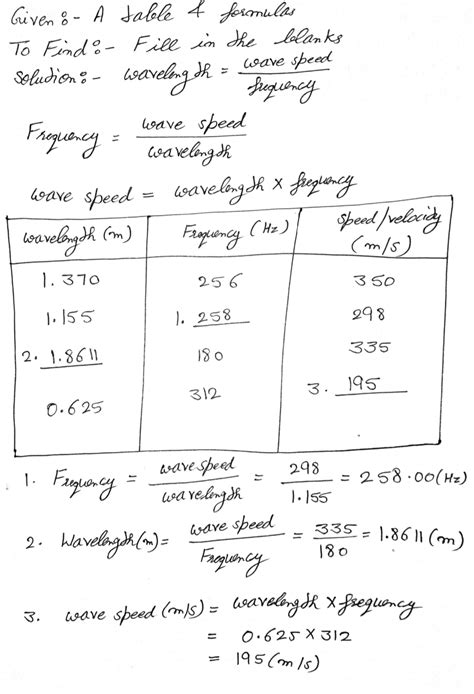 Given :- A table & formulas
To Find :- Fill in the blanks
Solution :- wavelength = wave speed / frequency
Frequency = wave speed / wavelength
wave speed = wavelength × frequency
wavelength (m) Frequency (Hz) speed/velocity (m/s)
1.370 256 350
1.155 1. 258 298
2. 1.8611 180 335
0.625 312 3. 195
1. Frequency = wave speed / wavelength = 298 / 1.155 = 258.00 (Hz)
2. Wavelength (m) = wave speed / Frequency = 335 / 180 = 1.8611 (m)
3. wave speed (m/s) = wavelength × frequency
= 0.625 × 312
= 195 (m/s)